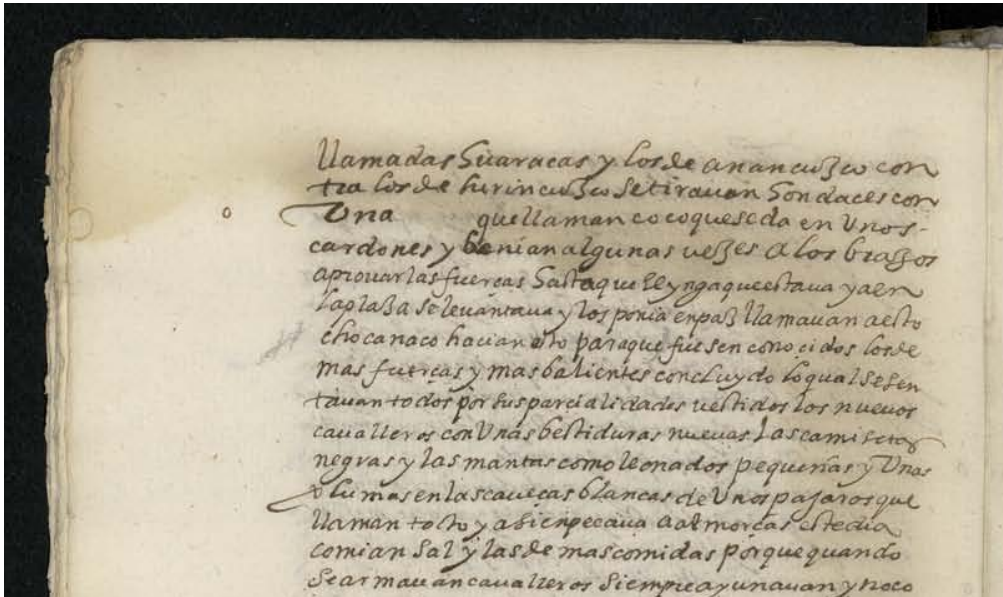 llamadas Guaracas y los de anancuzco con
tra los de hurincuzco se tiravan hondaces con
Una que llaman coco que se da en Unos
cardones y benian algunas vezes a los brazos
aprovar las fuercas hasta que el ynga que estava ya en
la plaza se levantava y los ponia en paz llamavan a esto
chocanaco hacian esto para que fuesen conocidos los de
mas fuercas y mas balientes concluydo lo qual se sen
tavan todos por sus parcialidades vestidos los nuevos
cavalleros con Unas bestiduras nuevas las camisetas
negras y las mantas como leonados pequeñas y Unas
plumas en las cavecas blancas de Unos pajaros que
llaman tocto y asi enpecava a almorcas este dia
comian sal y las demas comidas porque quando
se armavan cavalleros siempre ayunavan y no co